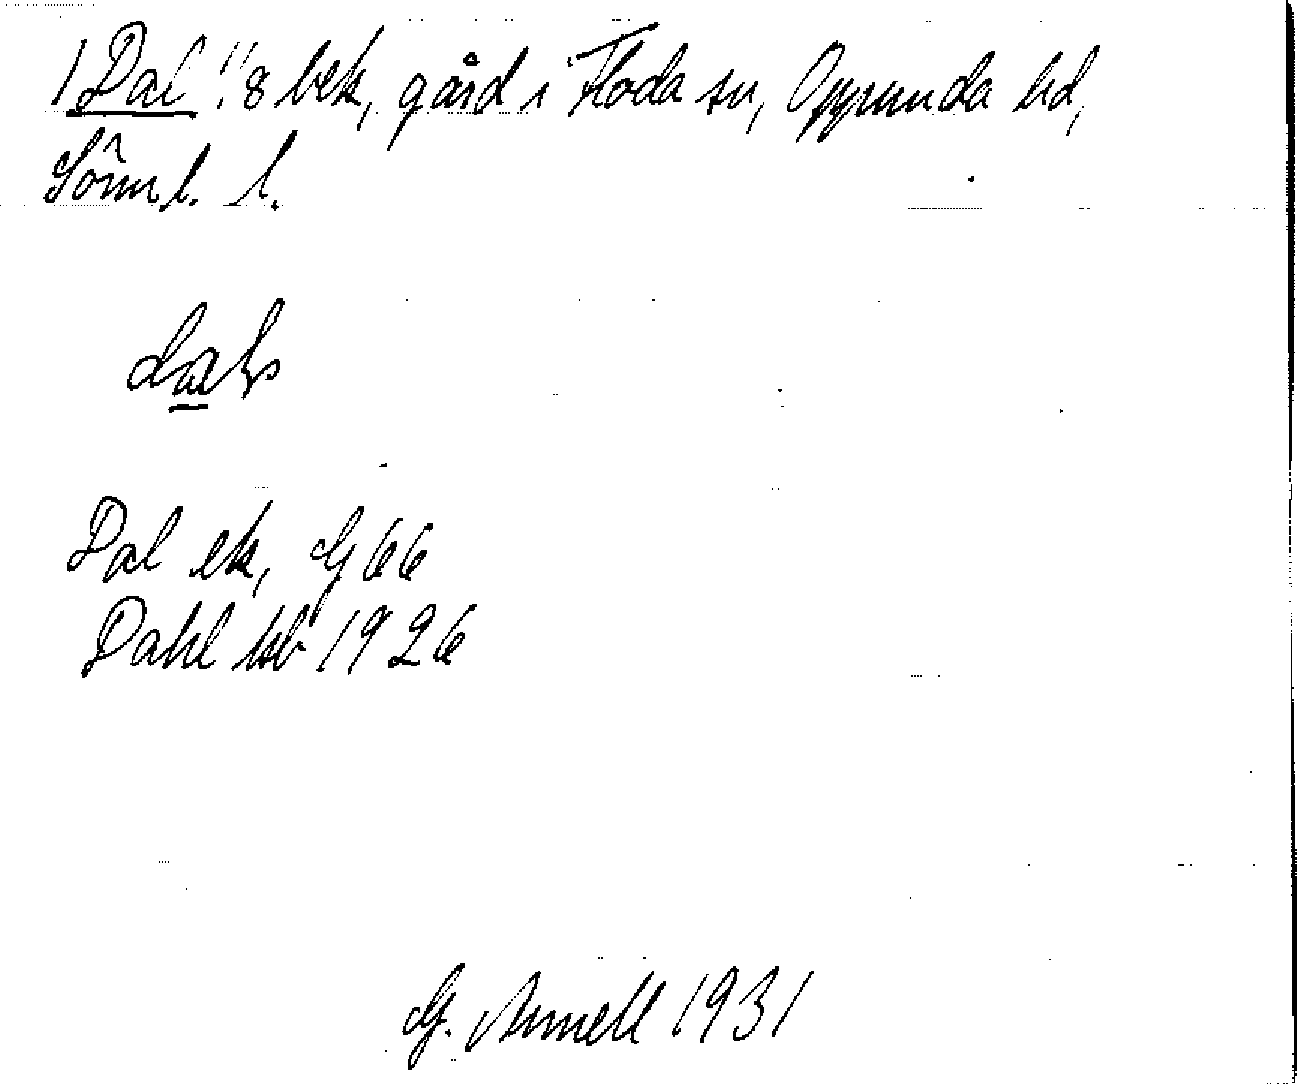 1 Dal 1/8 bek, gård i Floda sn, Oppunda hd,
Sörml. l.
Dal ek, G 66
Dahl hb 1926
G. Arnell 1931